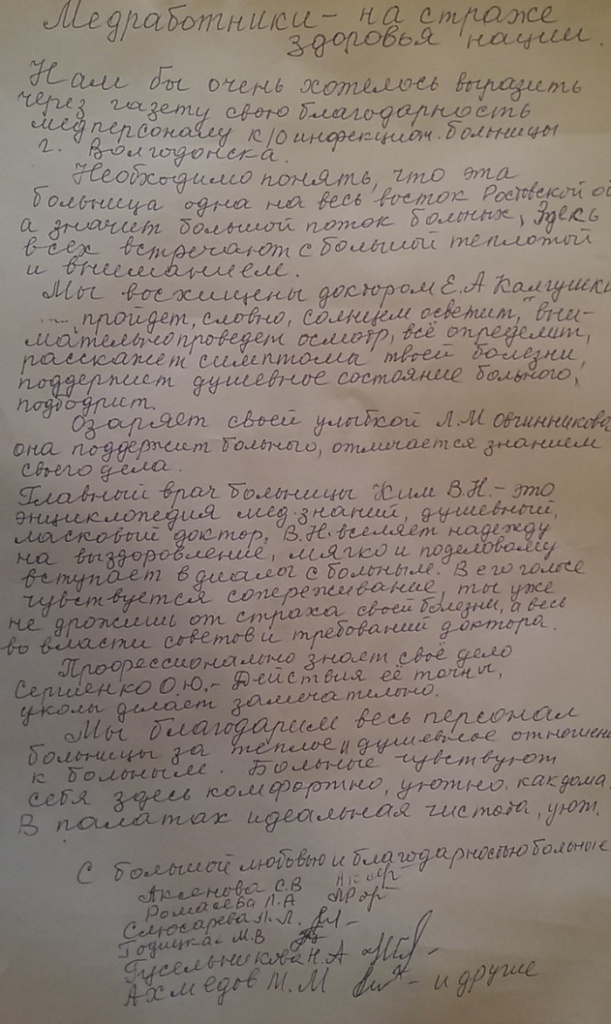 Медработники – на страже
здоровья нации.
Нам бы очень хотелось выразить
через газету свою благодарность
медперсоналу к/о инфекцион. больницы
г. Волгодонска.
Необходимо понять, что эта
больница одна на весь восток Ростовской об
а значит большой поток больных, Здесь
всех встречают с большой теплотой
и вниманием.
Мы восхищены доктором Е.А Калгушки
.... пройдет, словно, солнцем осветит, вни-
мательно проведет осмотр, всё определит,
расскажет симптома твоей болезни,
поддержит душевное состояние больного,
подбодрит.
Озаряет своей улыбкой Л.М Овчинникова
она поддержит больного, отличается знанием
своего дела.
Главный врач больницы Ким В.Н. – это
энциклопедия мед. знаний, душевный,
ласковый доктор, В.Н. вселяет надежду
на выздоровление, мягко и поделовому
вступает в диалог с больным. В его голосе
чувствуется сопереживание, ты уже
не дрожишь от страха своей болезни, а весь
во власти советов и требований доктора.
Профессионально знает своё дело
Сергиенко О.Ю. – Действия её точны,
уколы делает замечательно.
Мы благодарим весь персонал
больницы за теплое и душевное отношени
к больным. Больные чувствуют
себя здесь комфортно, уютно, как дома.
В палатах идеальная чистота, уют.
С большой любовью и благодарностью больные
Аксенова С.В
Ромасева Л.А
Слюсарева Л.Л.
Годицкая М.В
Гусельникова Н.А
Ахмедов М.М – и другие